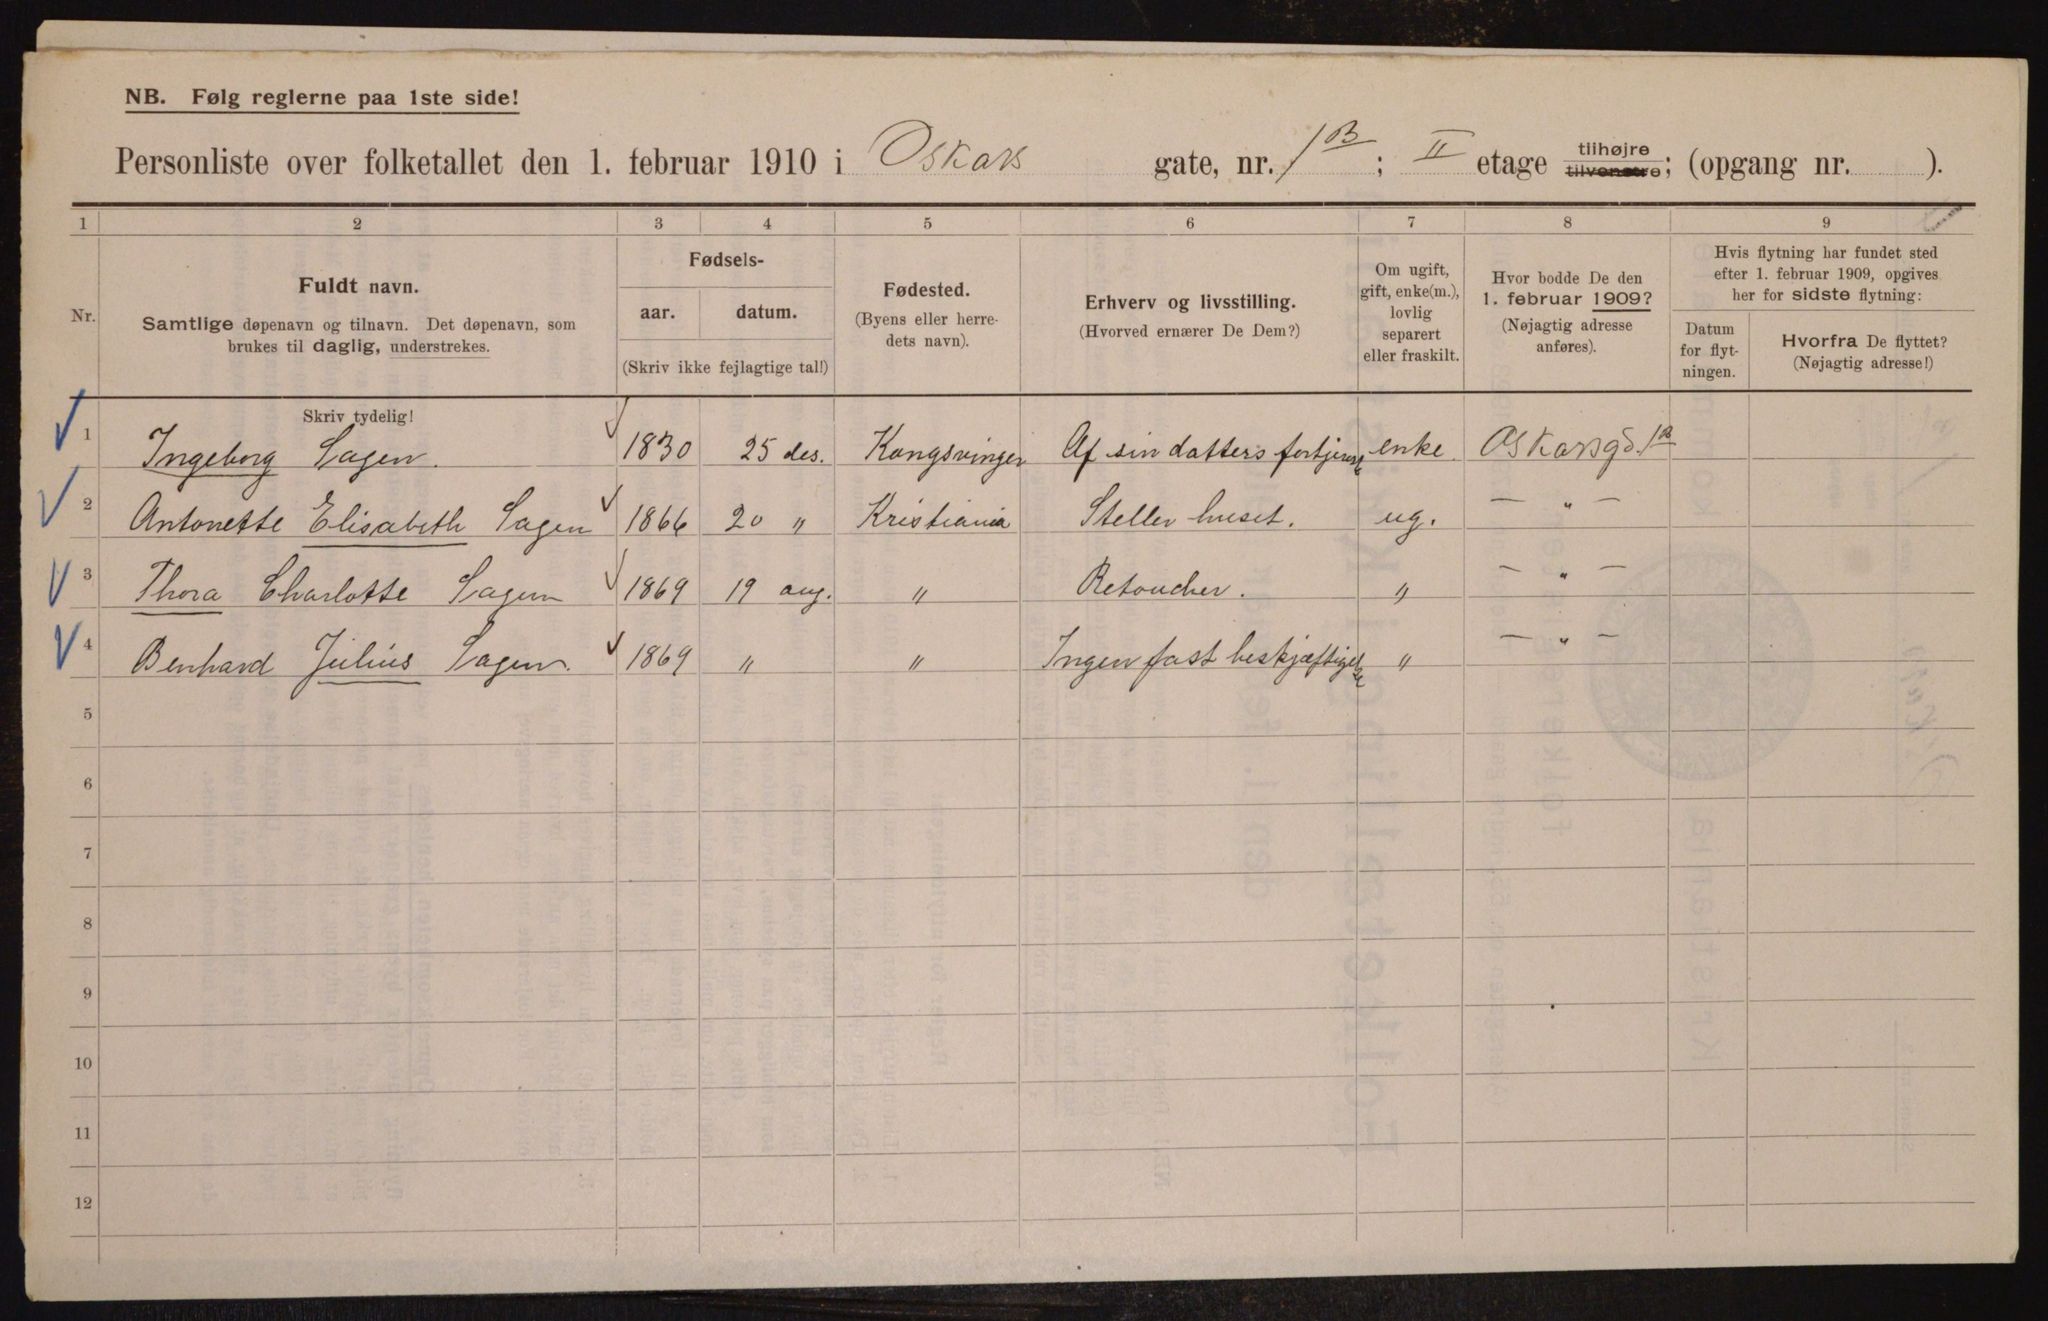 NB. Følg reglerne paa 1ste side!
Personliste over folketallet den 1. februar 1910 i Oskars gate, nr. 1B; II etage tilhøjre tilvenstre; (opgang nr. ).
1 2 3 4 5 6 7 8 9
Nr.
Fuldt navn.
Samtlige døpenavn og tilnavn. Det døpenavn, som
brukes til daglig, understrekes.
Fødsels-
aar. datum.
(Skriv ikke fejlagtige tal!)
Fødested.
(Byens eller herre-
dets navn).
Erhverv og livsstilling.
(Hvorved ernærer De Dem?)
Om ugift,
gift, enke(m.),
lovlig
separert
eller fraskilt.
Hvor bodde De den
1. februar 1909?
(Nøjagtig adresse
anføres).
Hvis flytning har fundet sted
efter 1. februar 1909, opgives
her for sidste flytning:
Datum
for flyt-
ningen.
Hvorfra De flyttet?
(Nøjagtig adresse!)
Skriv tydelig!
1 Ingeborg Sagen. 1830 25 des. Kongsvinger Af sin datters fortjeneste enke. Oskarsgd. 1B
2 Antonette Elisabeth Sagen 1866 20 " Kristiania Steller huset. ug. — " —
3 Thora Charlotte Sagen 1869 19 aug. " Retoucher. " — " —
4 Benhard Julius Sagen. 1869 " " Ingen fast beskjæftigelse " — " —
5
6
7
8
9
10
11
12